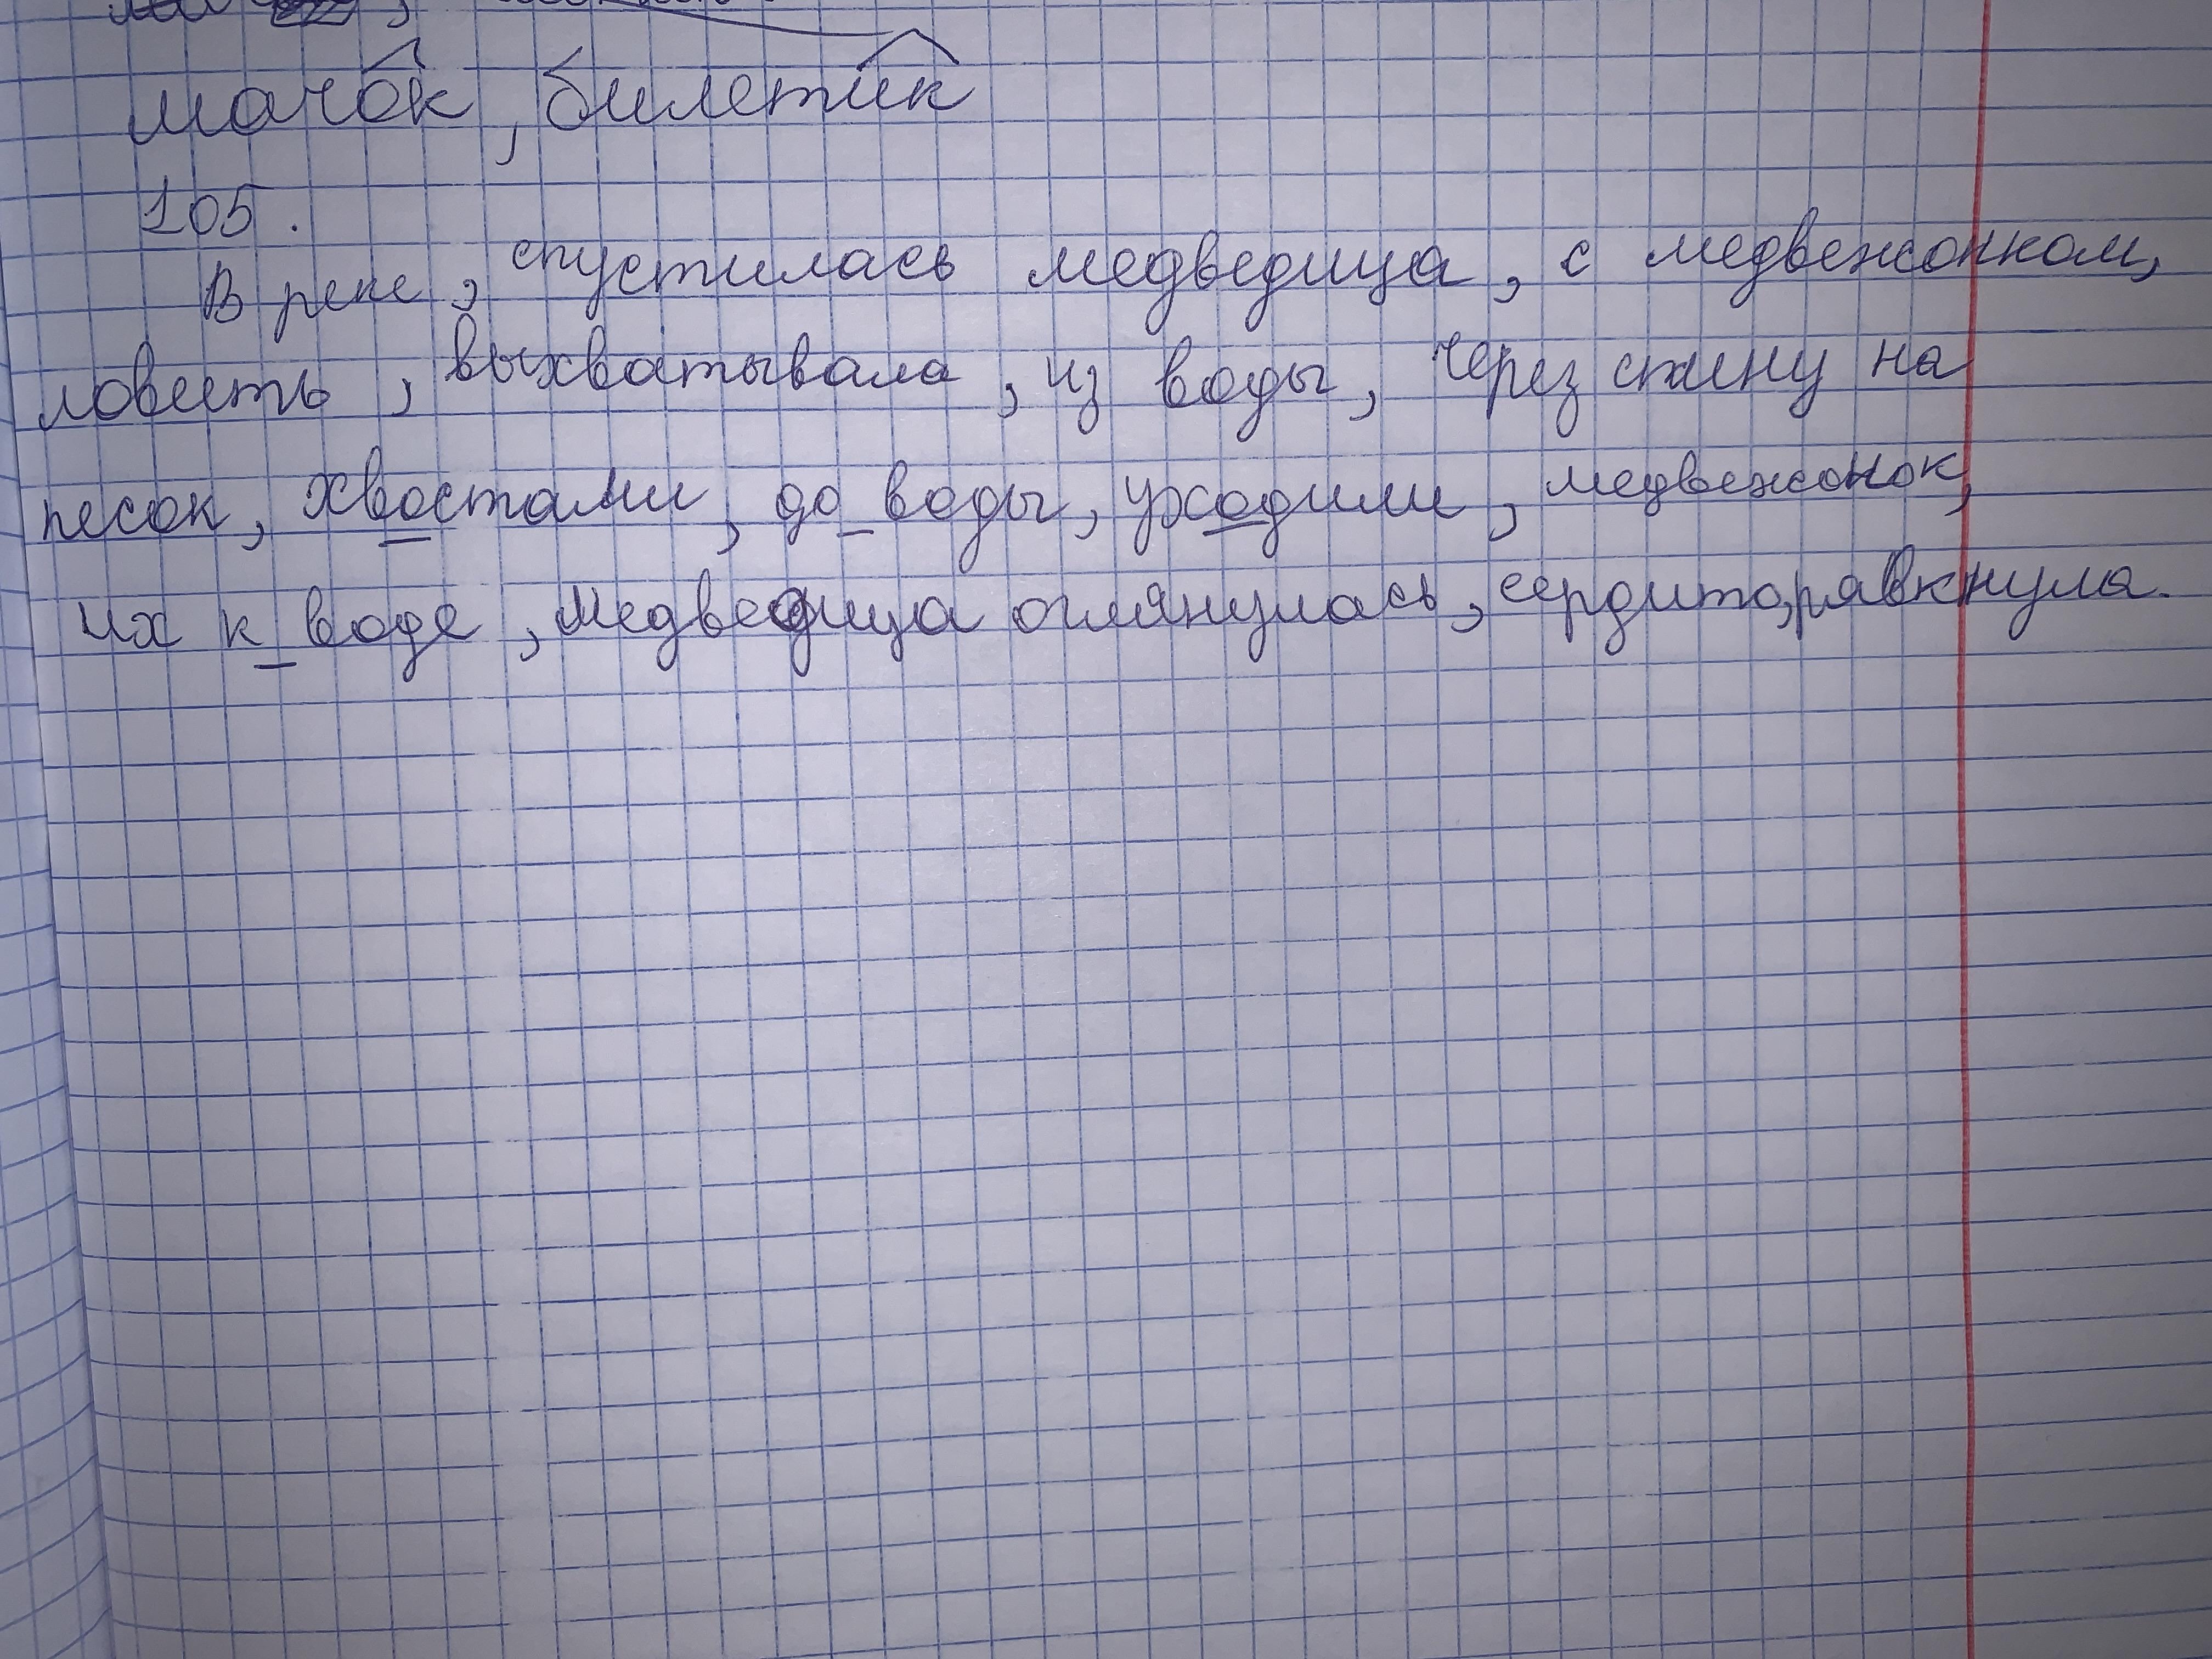 мачок, билетик
105.
В реке, спустилась медведица, с медвежонком,
ловить, выхватывала, из воды, через спину на
песок, хвостами, до воды, уходили, медвежонок,
их к воде, медведица оглянулась, сердито, рявкнула.